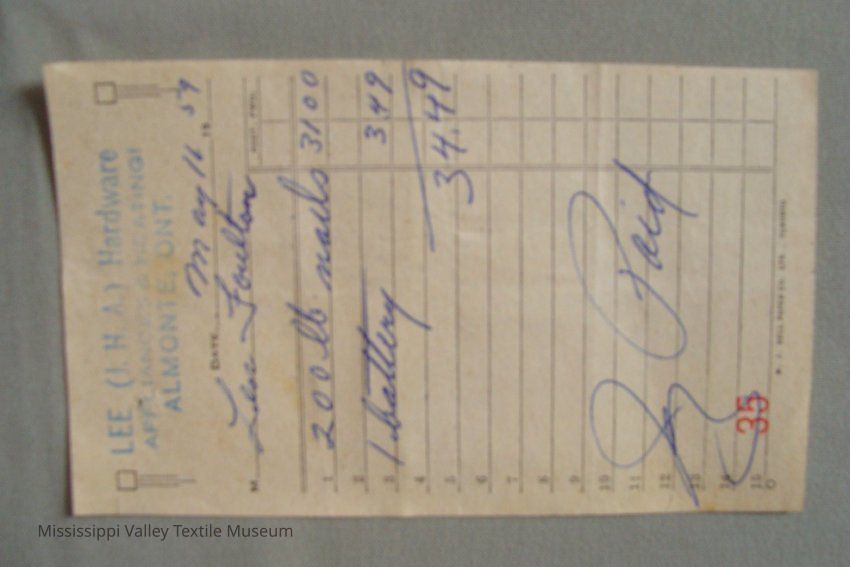 LEE (J. H. A.) Hardware
APPLIANCES & HEATING
ALMONTE, ONT.
DATE May 16 19 59
M Foulton
1 200 lb nails 31 00
2
3 1 battery 3.49
4
5 34.49
6
7
8
9
10
11 Paid
12
13
14
15
35
Mississippi Valley Textile Museum